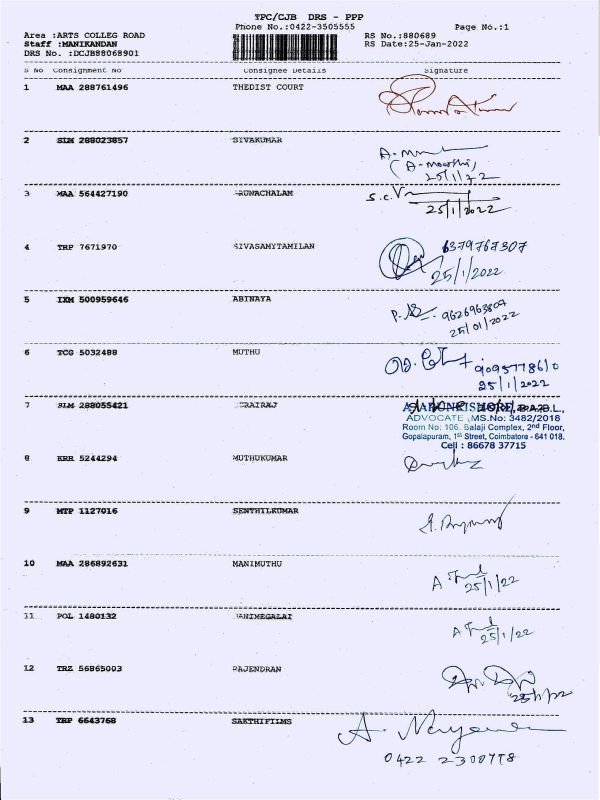 TPC/CJB DRS - PPP
Phone No.:0422-3505555
Page No.:1
Area :ARTS COLLEG ROAD
RS No.:880689
Staff :MANIKANDAN
RS Date:25-Jan-2022
DRS No. :DCJB88068901
S No Consignment No Consignee Details Signature
1 MAA 288761496 THEDIST COURT
2 SLM 288023857 SIVAKUMAR
A-
(A-moorthi)
25/1/22
3 MAA 564427190 RUNACHALAM
S.C.
25/1/2022
4 TRP 7671970 SIVASAMYTAMILAN
6379767307
25/1/2022
5 IXM 500959646 ABINAYA
P. 9626963807
25/01/2022
6 TCG 5032488 MUTHU
9095778610
25/1/2022
7 SLM 288055421
B.A.B.L.,
ADVOCATE ,MS.No: 3482/2018
Room No: 106, Balaji Complex, 2nd Floor,
Gopalapuram, 1st Street, Coimbatore - 641 018.
Cell : 86678 37715
8 KRR 5244294 MUTHUKUMAR
9 MTP 1127016 SENTHILKUMAR
10 MAA 286892631 MANIMUTHU
A
25/1/22
11 POL 1480132 ANIMEGALAI
A
25/1/22
12 TRZ 56865003 RAJENDRAN
25/1/22
13 TRP 6643768 SAKTHIFILMS
A.
0422 2300778